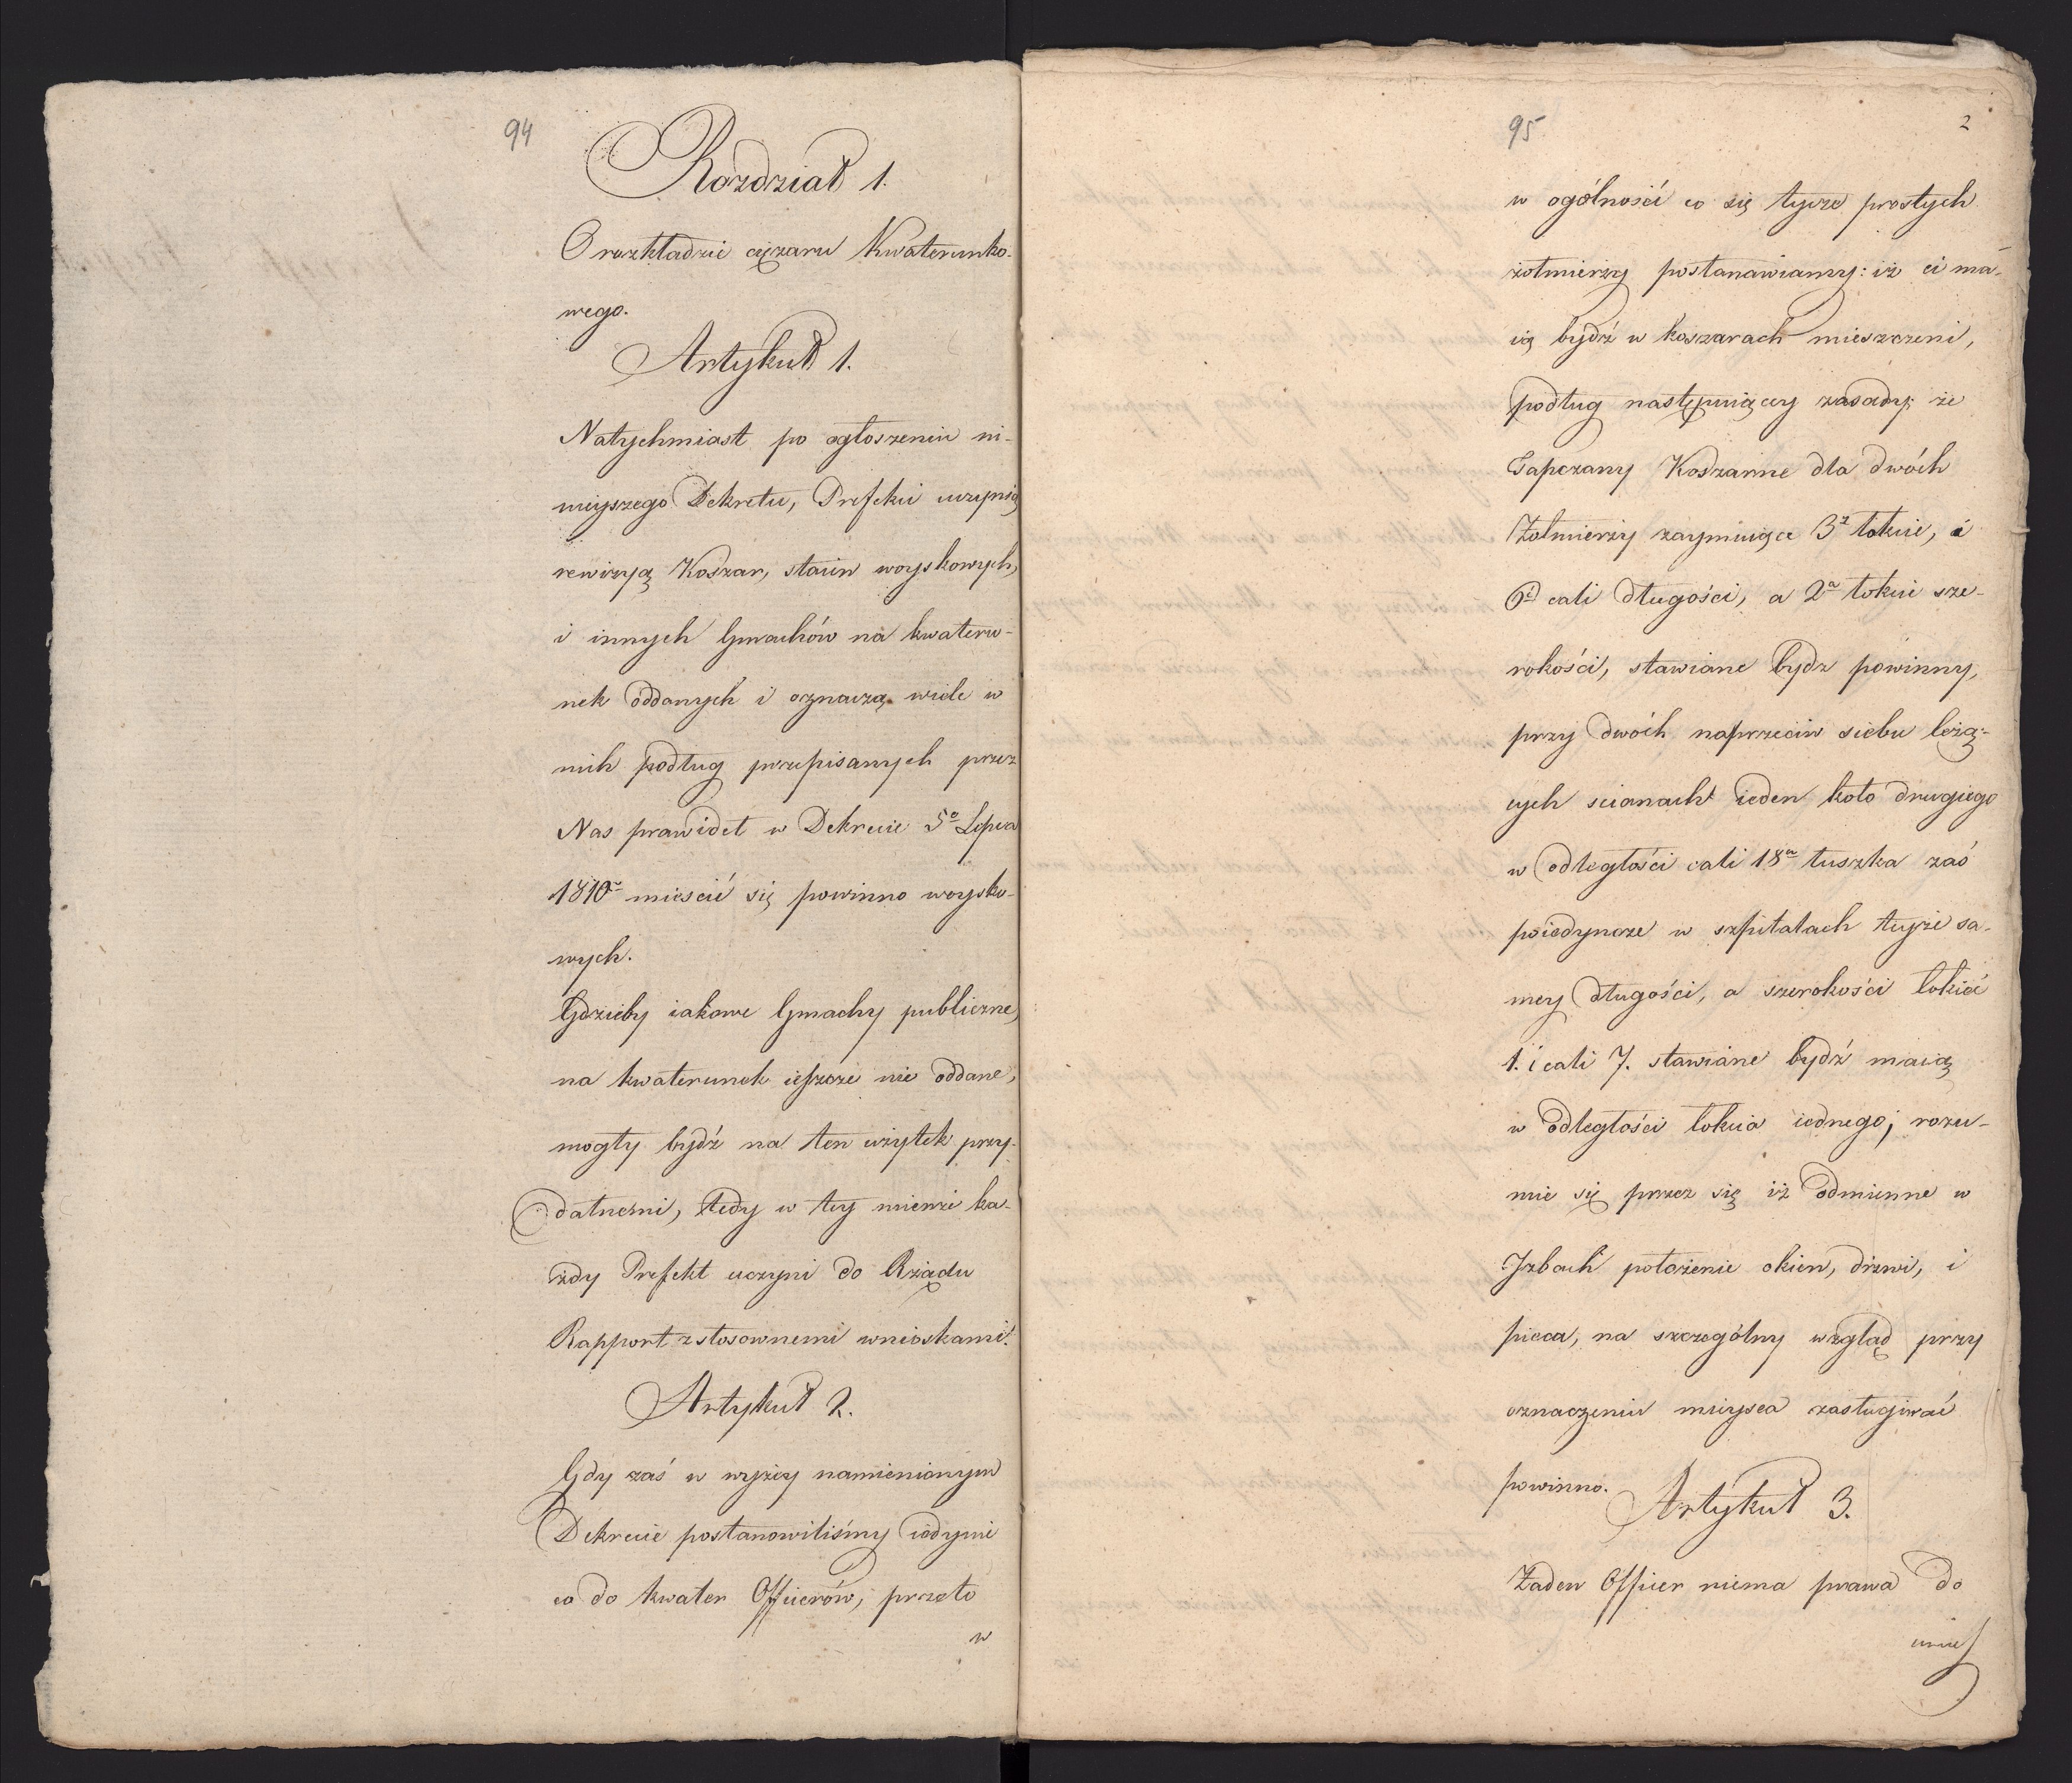 94
Rozdział 1.
O rozkładzie ciężaru Kwaterunko-
wego.
Artykuł 1.
Natychmiast po ogłoszeniu ni-
nieyszego Dekretu, Prefekci uczynią
rewizyą Koszar, stain woyskowych,
i innych Gmachów na kwateru-
nek oddanych i oznaczą wiele w
nich podług przepisanych przez
Nas prawideł w Dekrecie 5º Lipca
1810º mieścić się powinno woysko-
wych.
Gdzieby iakowe Gmachy publiczne,
na kwaterunek ieszcze nie oddane,
mogły bydź na ten użytek przy-
datnemi, tedy w tey mierze ka-
żdy Prefekt uczyni do Rządu
Rapport z stosownemi wnioskami.
Artykuł 2.
Gdy zaś w wyżey namienionym
Dekrecie postanowiliśmy iedynie
co do kwater Officerów, przeto
w
95
2
w ogólności co się tycze prostych
żołnierzy postanawiamy: iż ci ma-
ią bydź w koszarach mieszczeni,
podług następuiącey zasady; że
Tapczany Koszarne dla dwóch
Żołnierzy zaymuiące 3ʸ łokcie, i
6ć cali długości, a 2ª łokcie sze-
rokości, stawiane bydz powinny,
przy dwóch naprzeciw siebie leżą-
cych scianach ieden koło drugiego
w odległości cali 18ª łuszka zaś
poiedyncze w szpitalach teyże sa-
mey długości, a szerokości łokieć
1. i cali 7. stawiane bydź maią
w odległości łokcia iednego; rozu-
mie się przez się iż odmienne w
Izbach położenie okien, drzwi, i
pieca, na szczególny wzgląd przy
oznaczeniu mieysca zasługiwać
powinno.
Artykuł 3.
Żaden Officer niema prawa do